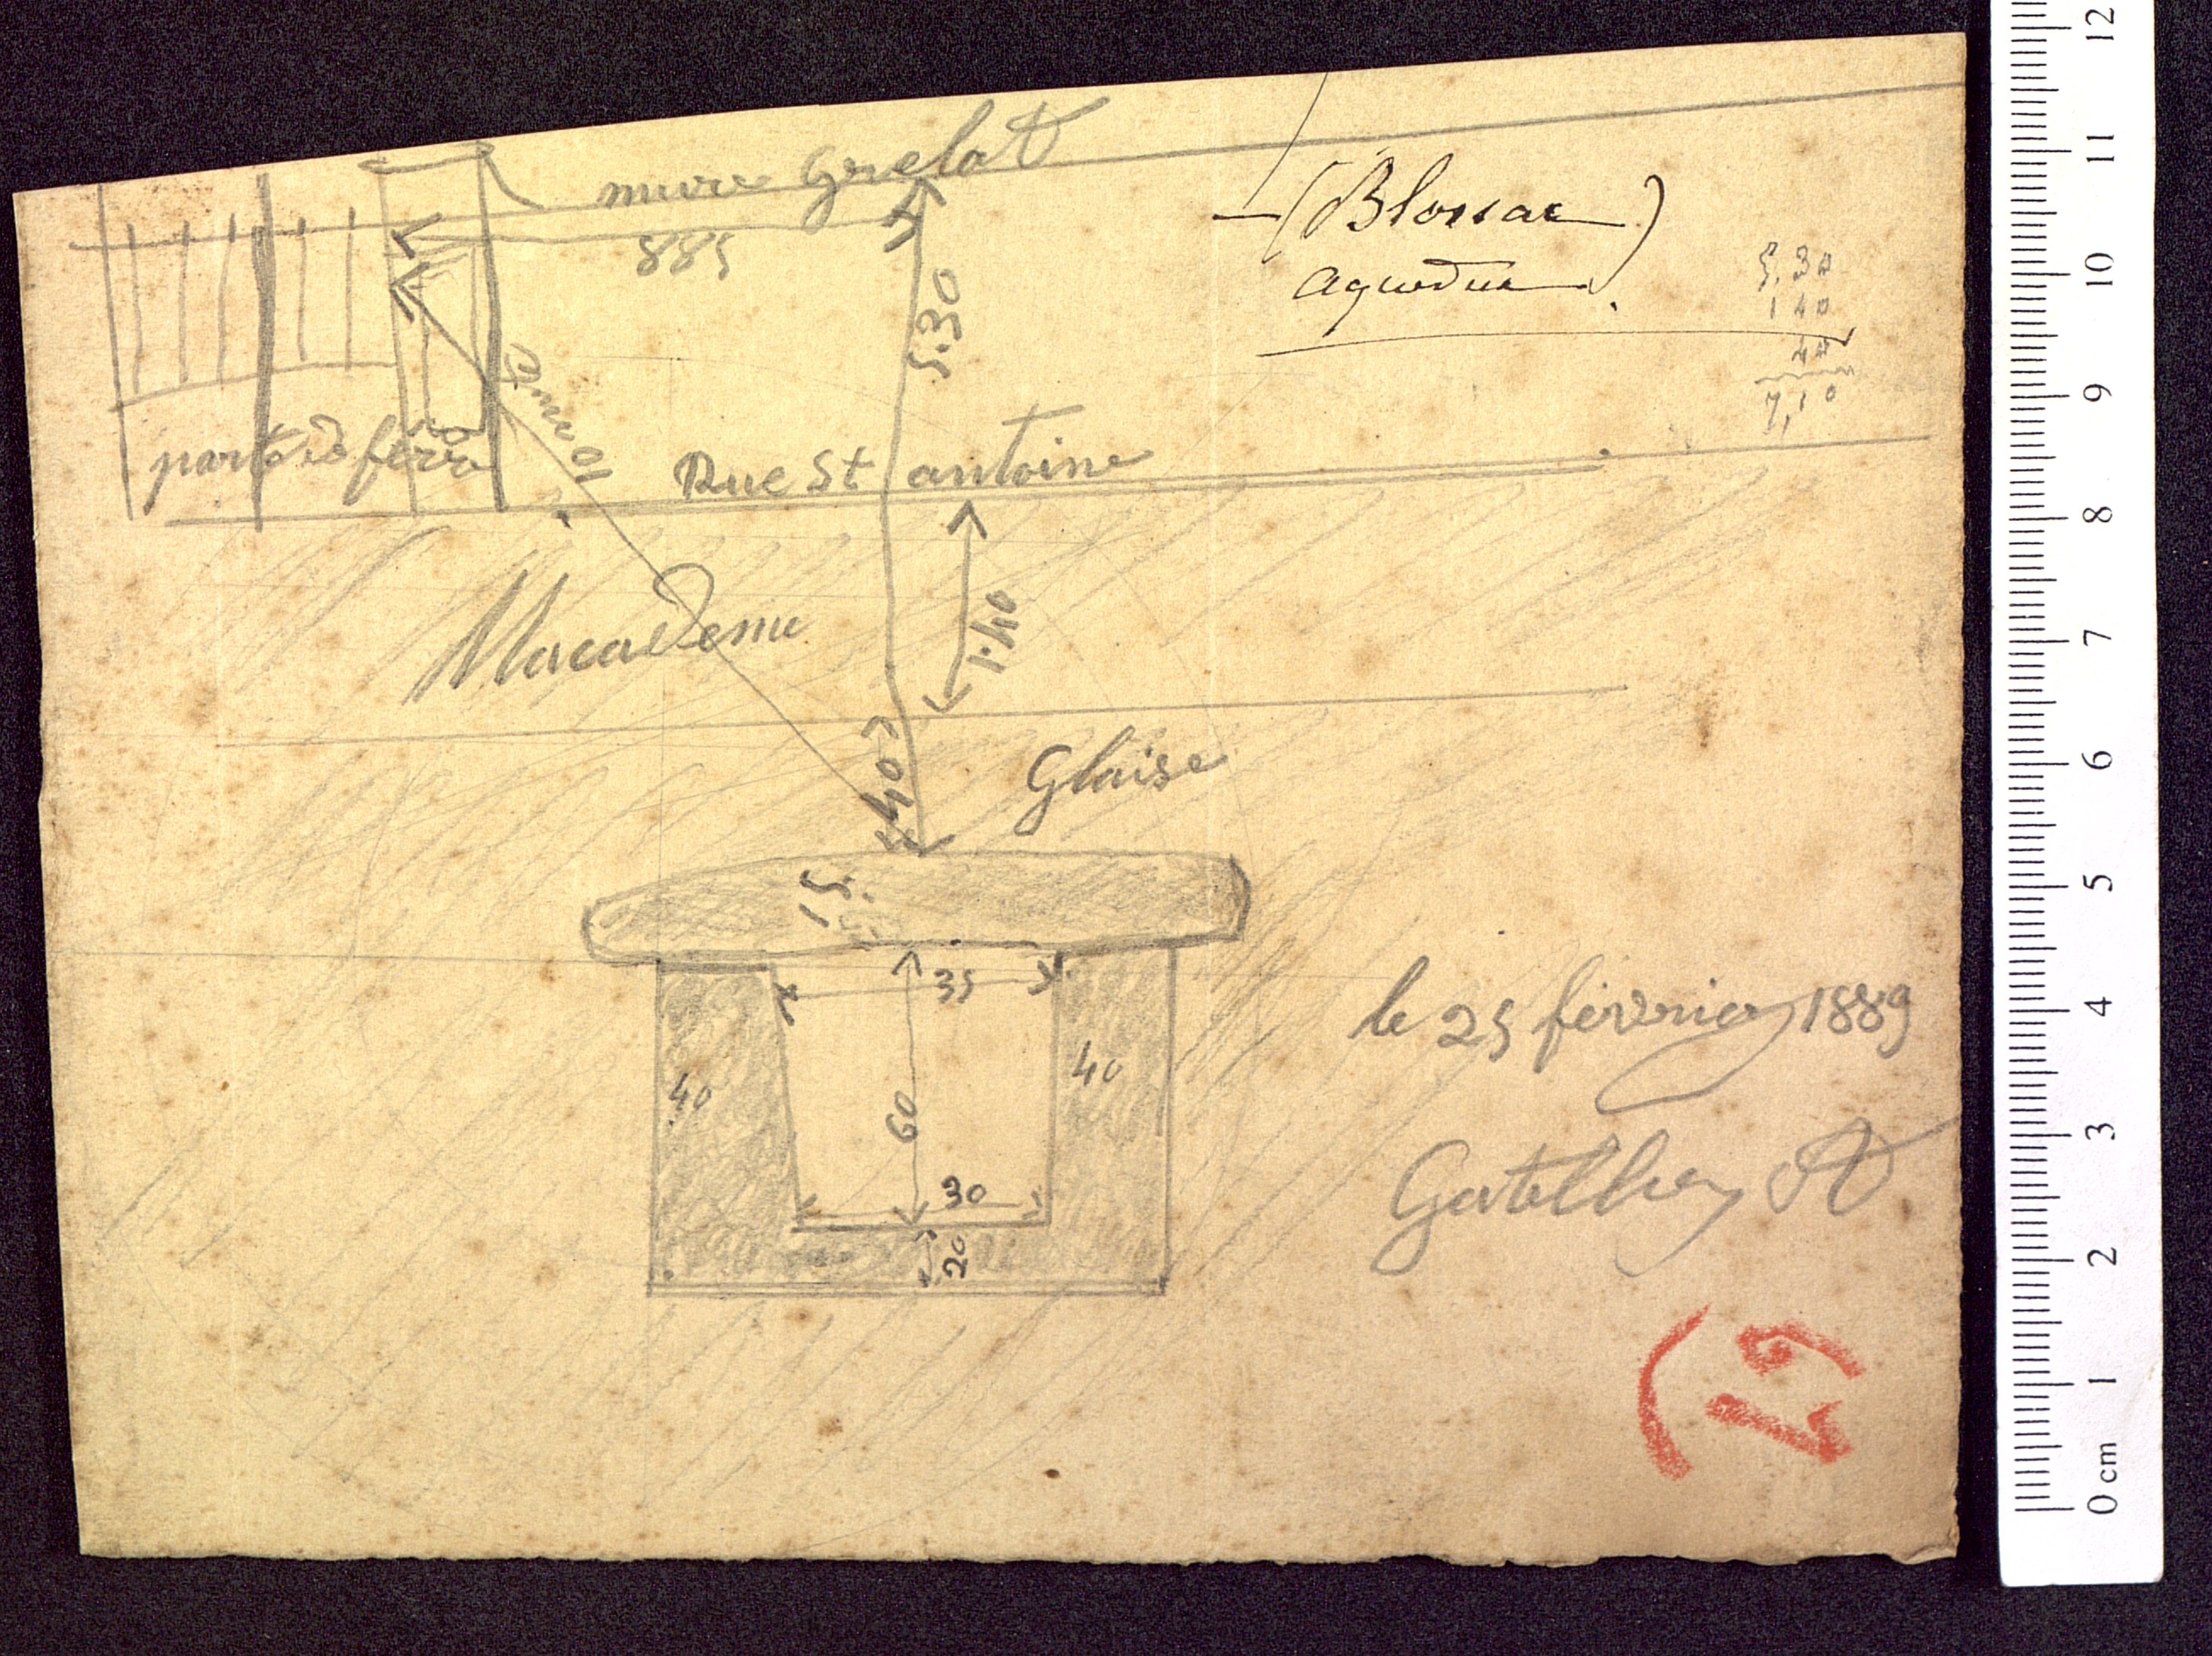 mure Grelat
885
5.30
(Blossac)
aqueduc
5,30
1 40
40
7,10
porte de fere
Rue St antoine
Macademe
1.40
40
Glaise
15
35
40
40
60
30
20
le 25 fevrier 1889
12
11
10
9
8
7
6
5
4
3
2
1
0 cm